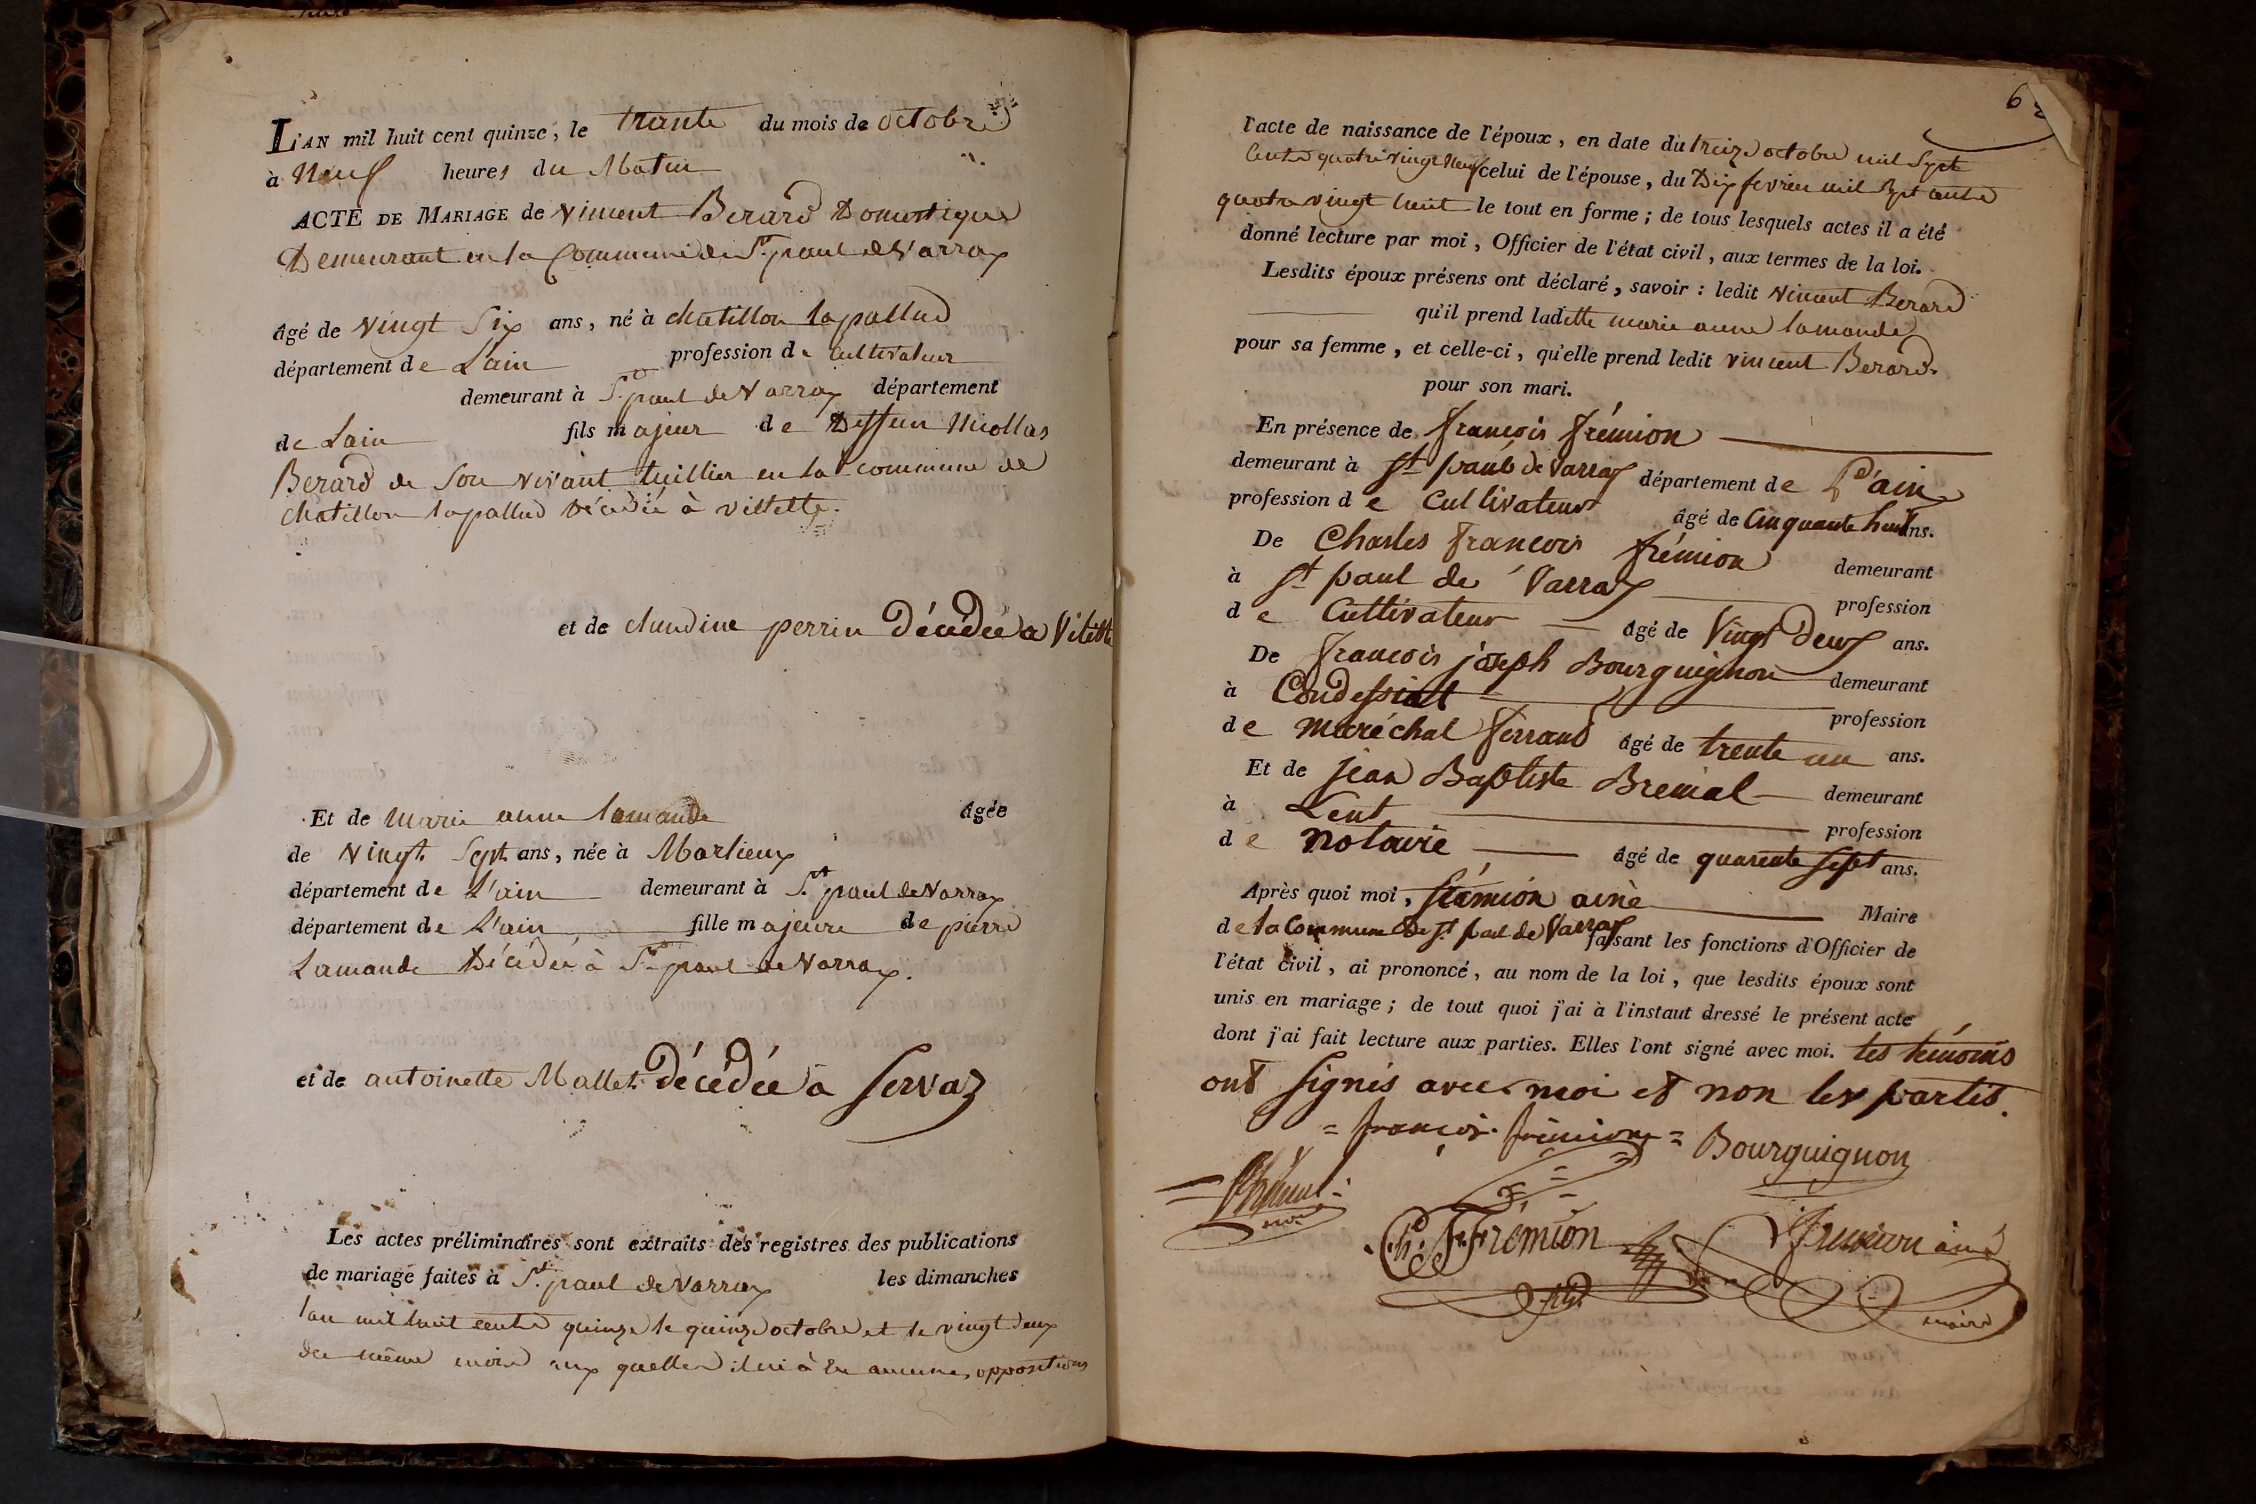 L'AN mil huit cent quinze, le trante du mois de octobre
à Neuf heures du Matin
ACTE DE MARIAGE de vincent Berard Domestique
Demeurant en la Commune de St. paul de Varrax
âgé de vingt Six ans, né à chatillon lapallud
département de Lain profession de cultivateur
demeurant à St. paul de Varrax département
de Lain fils majeur de Deffun Nicollas
Berard de Son vivant tuillier en la commune de
chatillon lapallud Décédé à villette.
et de claudine perrin Décédée a Vilette
Et de Marie anne lamande âgée
de vingt Sept ans, née à Marlieux
département de L'ain demeurant à St. paul de Varrax
département de L'ain fille majeure de pierre
Lamande Décédé à St. paul de Varrax.
et de antoinette Mallet Décédée a Servaz
Les actes préliminaires sont extraits des registres des publications
de mariage faites à St. paul de Varrax les dimanches
lan mil huit cents quinze le quinze octobre et le vingt deux
du même mois aux quelles il ni à Eu aucunes oppositions
6
l'acte de naissance de l'époux, en date du treize octobre mil Sept
Cents quatre vingt Neuf celui de l'épouse, du Dix fevrier mil Sept cents
quatre vingt huit le tout en forme ; de tous lesquels actes il a été
donné lecture par moi, Officier de l'état civil, aux termes de la loi.
Lesdits époux présens ont déclaré, savoir : ledit vincent Berard
qu'il prend laditte marie anne lamande
pour sa femme, et celle-ci, qu'elle prend ledit vincent Berard.
pour son mari.
En présence de françois frémion
demeurant à St paul de Varras département de L'ain
profession de Cultivateur âgé de Cinquante huit ans.
De Charles françois frémion demeurant
à St paul de Varras profession
de Cultivateur âgé de Vingt deux ans.
De françois joseph Bourguignon demeurant
à Condessiat profession
de maréchal ferrand âgé de trente un ans.
Et de jean Baptiste Brenial demeurant
à Lent profession
de notaire âgé de quarente sept ans.
Après quoi moi, frémion ainè Maire
de la Commune De St. paul de Varras faisant les fonctions d'Officier de
l'état civil, ai prononcé, au nom de la loi, que lesdits époux sont
unis en mariage ; de tout quoi j'ai à l'instaut dressé le présent acte
dont j'ai fait lecture aux parties. Elles l'ont signé avec moi. les témoins
ont signés avec moi et non les partis.
= françois frémion = Bourguignon
Ch. F. Frémion fils Fremion ainé
maire